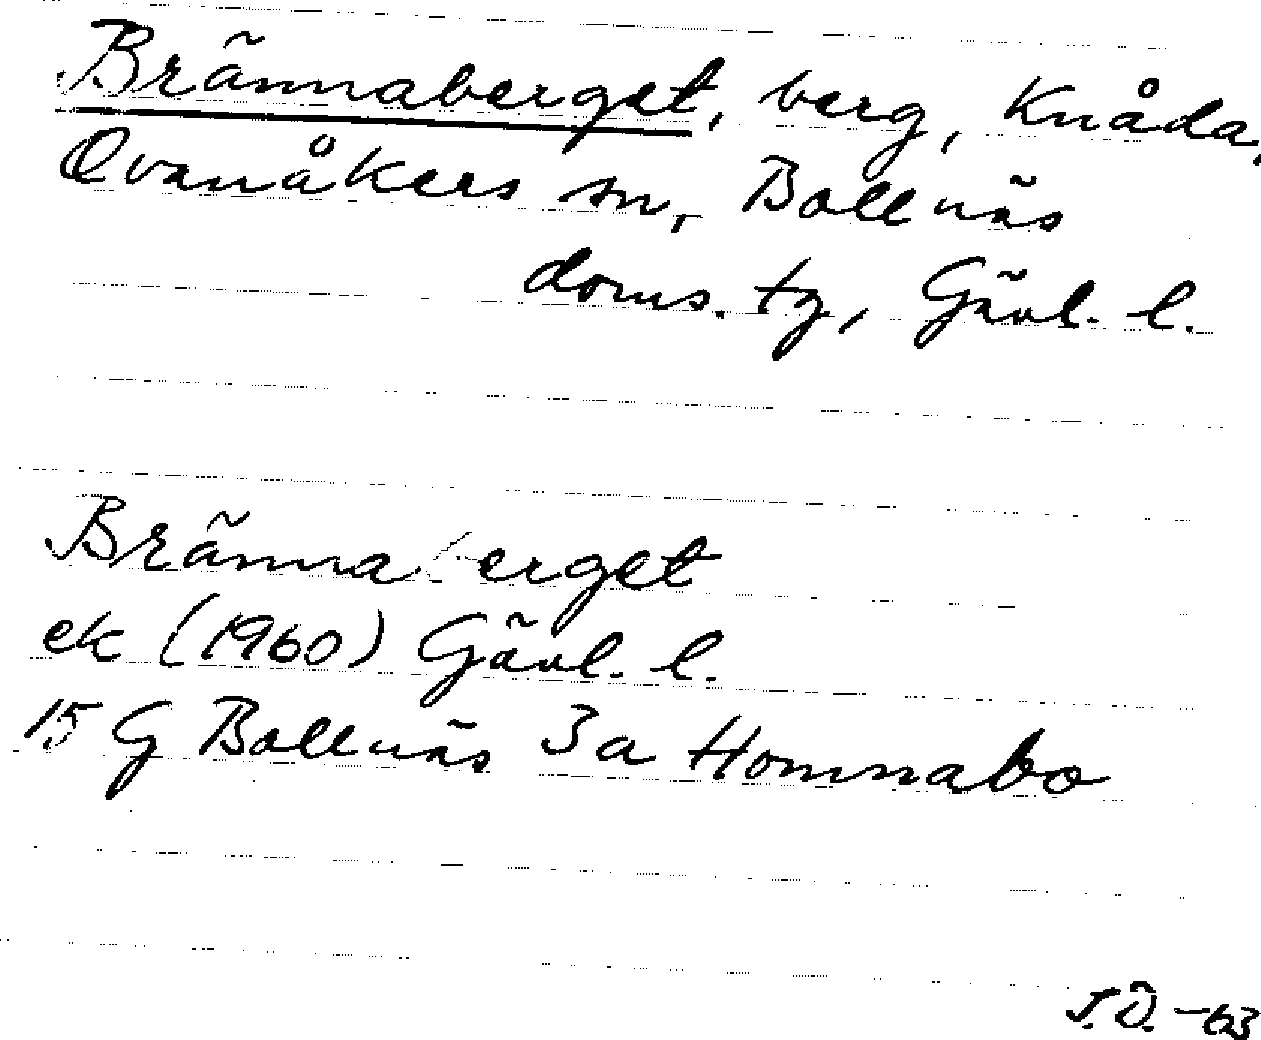 Brännaberget, berg, Knåda,
Ovanåkers sn, Bollnäs
doms. tg, Gävl. l.
Brännaberget
ek (1960) Gävl. l.
15 G Bollnäs 3a Homnabo
J.Ö. -63